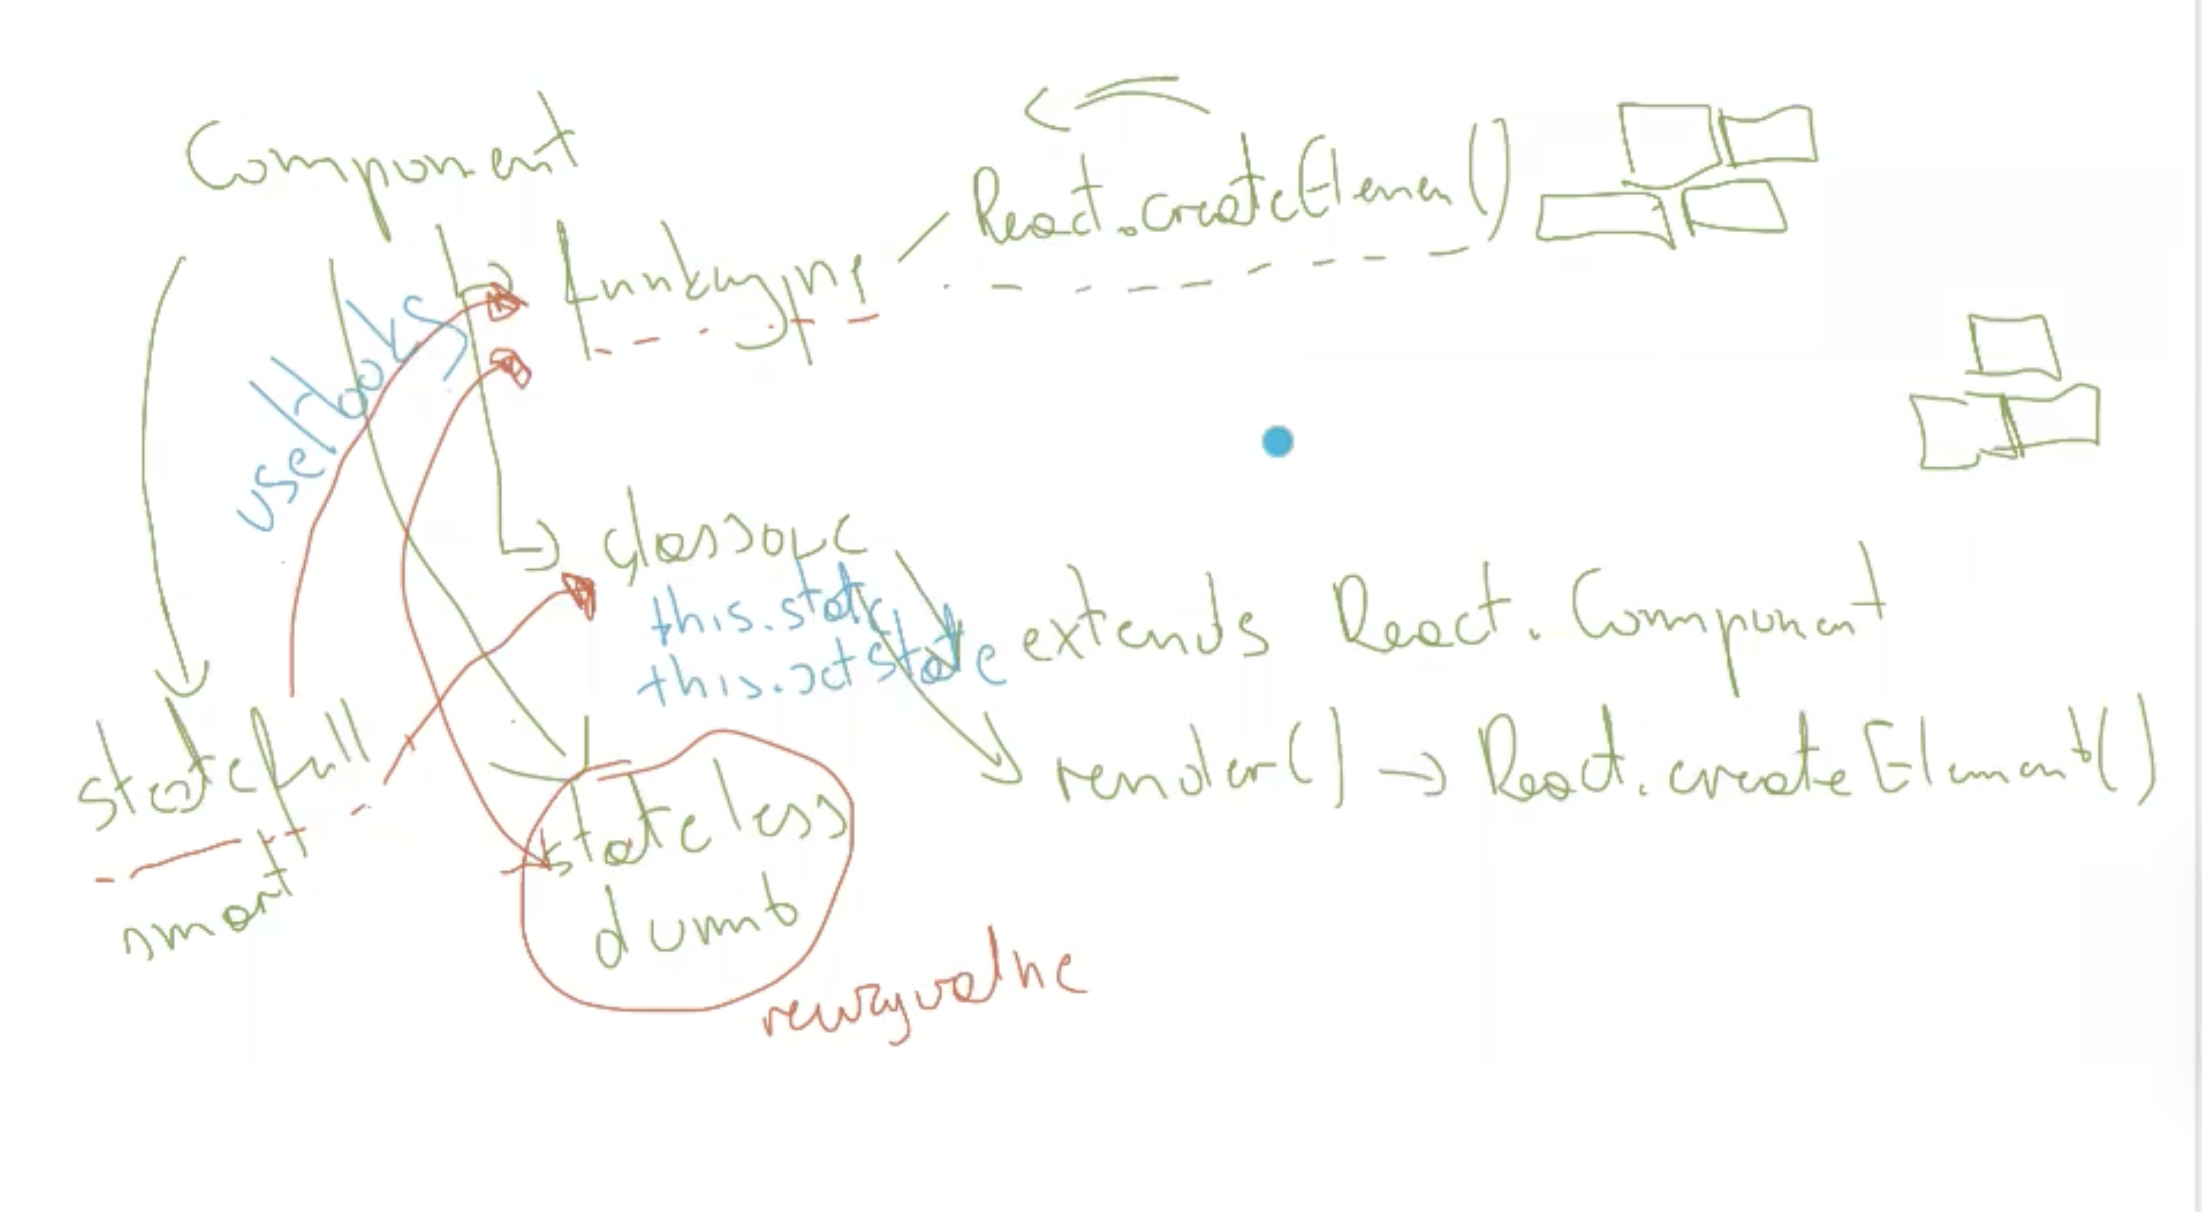 Component
React.createElemen()
funkcyjny
useHooks
klasowe
this.state
this.setState
extends React.Component
render() → React.createElement()
statefull
smart
stateless
dumb
reużywalne